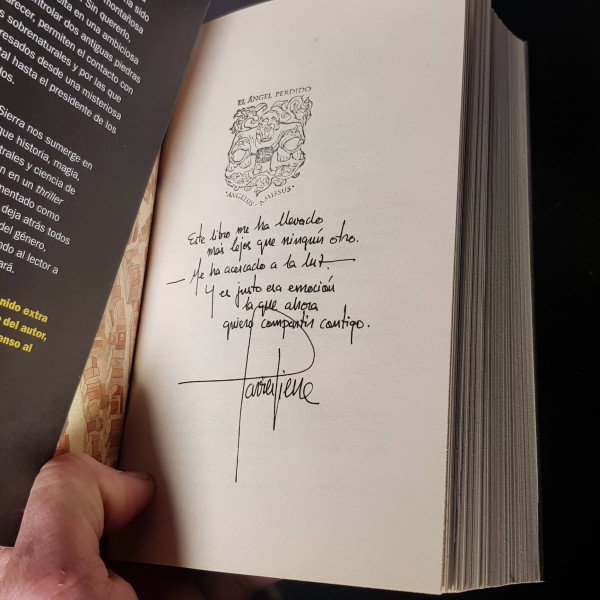 montañosa
Sin quererlo,
lta en una ambiciosa
ontrolar dos antiguas piedras
recer, permiten el contacto con
s sobrenaturales y por las que
resados desde una misteriosa
tal hasta el presidente de los
dos.
Sierra nos sumerge en
que historia, magia,
trales y ciencia de
n en un thriller
mentado como
deja atrás todos
del género,
ndo al lector a
ará.
nido extra
del autor,
enso al
EL ÁNGEL PERDIDO
·ANGELUS·AMISSUS·
Este libro me ha llevado
más lejos que ningún otro.
Me ha acercado a la luz.
Y es justo esa emoción
la que ahora
quiero compartir contigo.